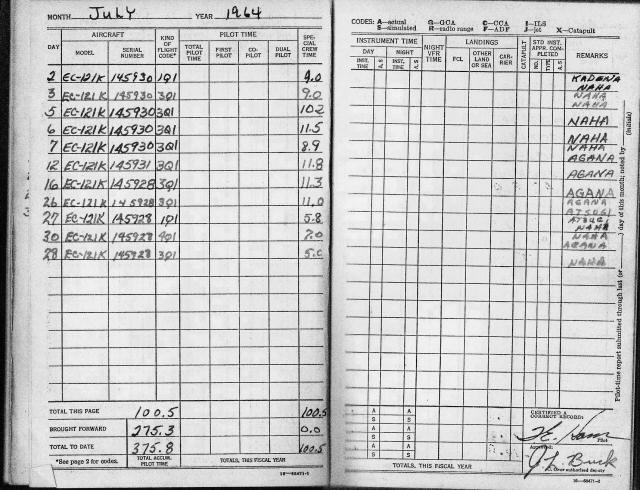 MONTH JULY YEAR 1964
DAY AIRCRAFT KIND OF FLIGHT CODE* PILOT TIME SPECIAL CREW TIME
MODEL SERIAL NUMBER TOTAL PILOT TIME FIRST PILOT CO-PILOT DUAL PILOT
2 EC-121K 145930 1Q1 9.0
3 EC-121K 145930 3Q1 9.0
5 EC-121K 145930 3Q1 10.2
6 EC-121K 145930 3Q1 11.5
7 EC-121K 145930 3Q1 8.9
12 EC-121K 145931 3Q1 11.8
16 EC-121K 145928 3Q1 11.3
26 EC-121K 145928 3Q1 11.0
27 EC-121K 145928 1Q1 5.8
30 EC-121K 145928 7.0
28 EC-121K 145928 3Q1 5.0
TOTAL THIS PAGE 100.5 100.5
BROUGHT FORWARD 275.3 0.0
TOTAL TO DATE 375.8 100.5
*See page 2 for codes. TOTAL ACCUM. PILOT TIME TOTALS, THIS FISCAL YEAR
CODES: A—actual G—GCA C—CCA I—ILS
S—simulated R—radio range F—ADF J—jet X—Catapult
INSTRUMENT TIME NIGHT VFR TIME LANDINGS CATAPULT STD INST. APPR. COMPLETED REMARKS
DAY NIGHT FCL OTHER LAND OR SEA CARRIER NO. TYPE A.S
INST. TIME A.S INST. TIME A.S
KADENA
NAHA
NAHA
NAHA
NAHA
NAHA
NAHA
AGANA
AGANA
AGANA
AGANA
ATSUGI
ATSUGI
NAHA
NAHA
AGANA
NAHA
Pilot-time report submitted through last (or ) day of this month; noted by (initials)
CERTIFIED A CORRECT RECORD:
Pilot
Approved:
J L Buck
C.O. or authorized deputy
A A
S S
A A
S S
A A
S S
TOTALS, THIS FISCAL YEAR